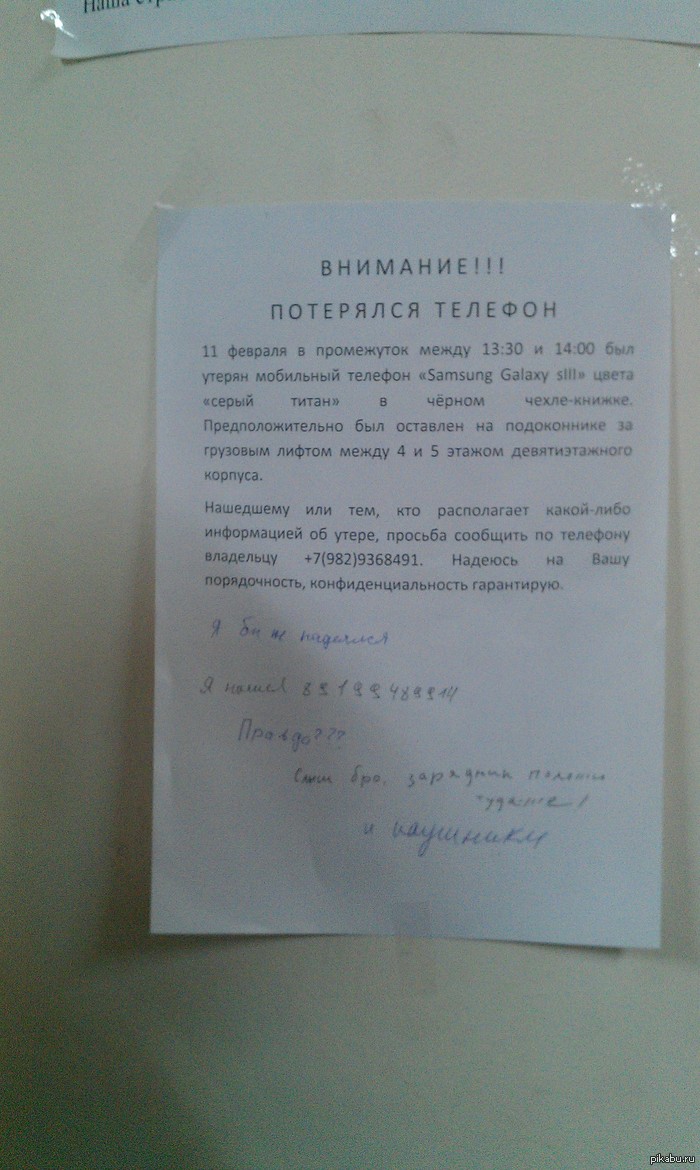 Наша
ВНИМАНИЕ!!!
ПОТЕРЯЛСЯ ТЕЛЕФОН
11 февраля в промежуток между 13:30 и 14:00 был
утерян мобильный телефон «Samsung Galaxy sIII» цвета
«серый титан» в чёрном чехле-книжке.
Предположительно был оставлен на подоконнике за
грузовым лифтом между 4 и 5 этажом девятиэтажного
корпуса.
Нашедшему или тем, кто располагает какой-либо
информацией об утере, просьба сообщить по телефону
владельцу +7(982)9368491. Надеюсь на Вашу
порядочность, конфиденциальность гарантирую.
Я бы не надеялся
Я нашел 89199489914
Правдо???
Слыш бро, зарядник положи
туда же!
и наушники
pikabu.ru